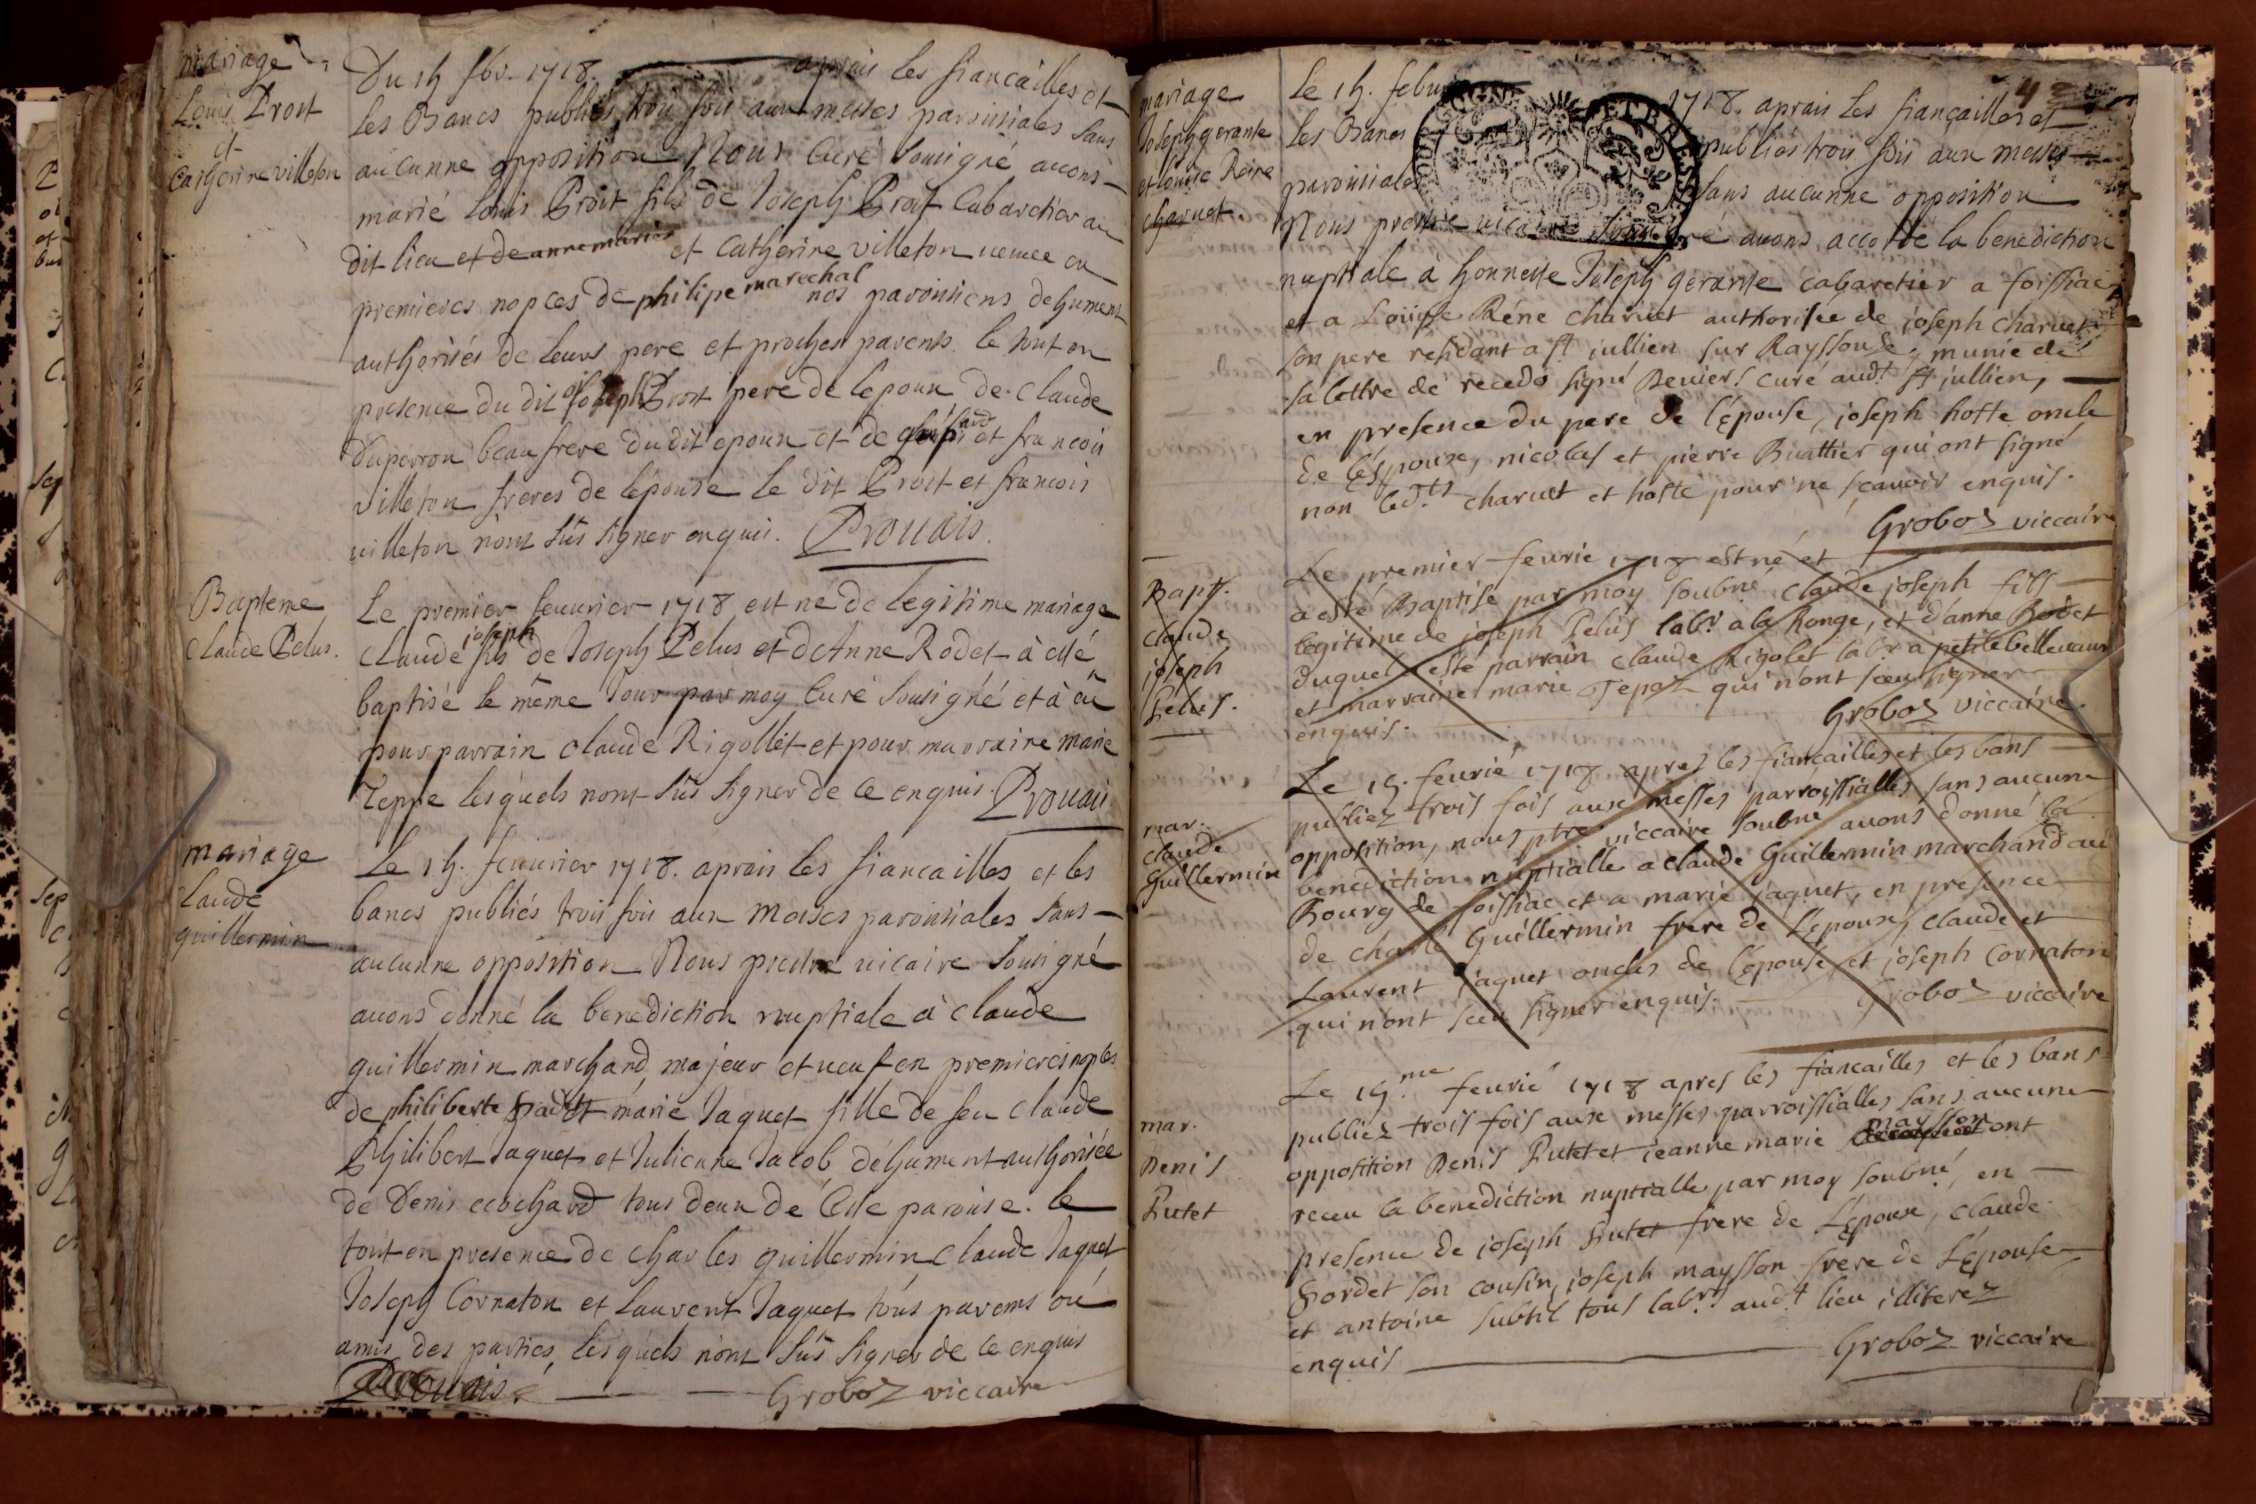 mariage
Louis Prost
et
Catherine villeton
Du 15 fbr. 1718. aprais les fiancailles et
les Bancs publiés trois fois aux messes paroissiales sans
aucunne opposition Nous Curé Sousigné auons
marié Louis Prost fils de Joseph Prost Cabaretier au
dit lieu et de annemarie et Catherine villeton veuue en
premieres nopces de philipe marechal nos paroissiens dehument
authorisés de leurs pere et proches parents le tout en
presence du dit Joseph Prost pere de lepoux de Claude
Duperron beau frere dudit epoux et de et francois
villeton freres de lépouse le dit Prost et francois
villeton nont sús signer enquis. Prouais.
Bapteme
Claude Pelus.
Le premier feuurier 1718 est né de legitime mariage
Claude joseph fils de Joseph Pelus et dAnne Rodet à esté
baptisé le même Jour par moy Curé Sousigné et à eú
pour parrain Claude Rigollet et pour marraine marie
Teppe lesquels nont sús signer de ce enquis. Prouais
mariage
Claude
guillermin
Le 15. feuurier 1718. aprais les fiancailles et les
bancs publiés trois fois aux messes paroissiales sans
aucunne opposition Nous prestre uicaire Sousigné
auons donné la benediction nuptiale à Claude
guillermin marchand, majeur et ueuf en premieres nopces
de philiberte et marie Jaquet fille de feu Claude
Philibert Jaquet et Julienne Jacob déhument authorisée
de Denis ecochard tous deux dé Cette paroise. le
tout en presence de Charles guillermin Claude Jaquet
Joseph Cornaton et Laurent Jaquet tous parents ou
amis des parties, lesquels nont sús signer de ce enquis
Prouais. Groboz viccaire
mariage
Joseph gerante
et Louise Reine
Charuet.
Le 15. febur 1718. aprais les fiançailles et
les Bancs publiés trois fois aux messes
paroissiales sans aucunne opposition
Nous prestre viccaire sousigné auons accordé la benediction
nuptiale à honneste Joseph gerante cabaretier a foissiac
et a Loüise Réne charuet authorisée de joseph charuet
son pere residant a st jullien sur Rayssouse, munie de
sa lettre de recedo signé Reniers curé audt st jullien,
en presence du pere de l'épouse, joseph hoste oncle
de l'espouse, nicolas et pierre Buattier qui ont signé
non ledts charuet et hoste pour ne scauoir enquis.
Groboz viccaire
Bapt.
Claude
joseph
Pelus.
Le premier feurie 1718 est né et
a esté Baptisé par moy soubné Claude joseph fils
legitime de joseph Pelus labr. a la Ronge, et d'anne Rodet
duquel esté parrain Claude Rigolet labr. a petite belleuaur
et marraine marie Tepoz qui n'ont sceu signer
enquis.
Groboz viccaire.
mar.
claude
Guillermin
Le 15. feurié 1718 apres les fiancailles et les bans
publiez trois fois aux messes parroissialles sans aucune
opposition, nous ptre viccaire soubne auons donné la
benediction nuptialle a claude Guillermin marchand au
Bourg de foissiac et a marie jaquet, en presence
de charle Guillermin frere de L'epoux, claude et
Laurent jaquet oncles de l'epouse, et joseph Cornaton
qui n'ont sceu signer enquis. Groboz viccaire
mar.
Denis
Putet
Le 15.me feurié 1718 apres les fiancailles et les bans
publiez trois fois aux messes parroissialles sans aucune
opposition Denis Putet et jeanne marie maysson ont
receu la benediction nuptialle par moy soubné, en
presence de joseph Putet frere de L'epoux, claude
Bordet son cousin, joseph maysson frere de L'épouse
et antoine subtil tous labrs audt lieu illiterez
enquis Groboz viccaire